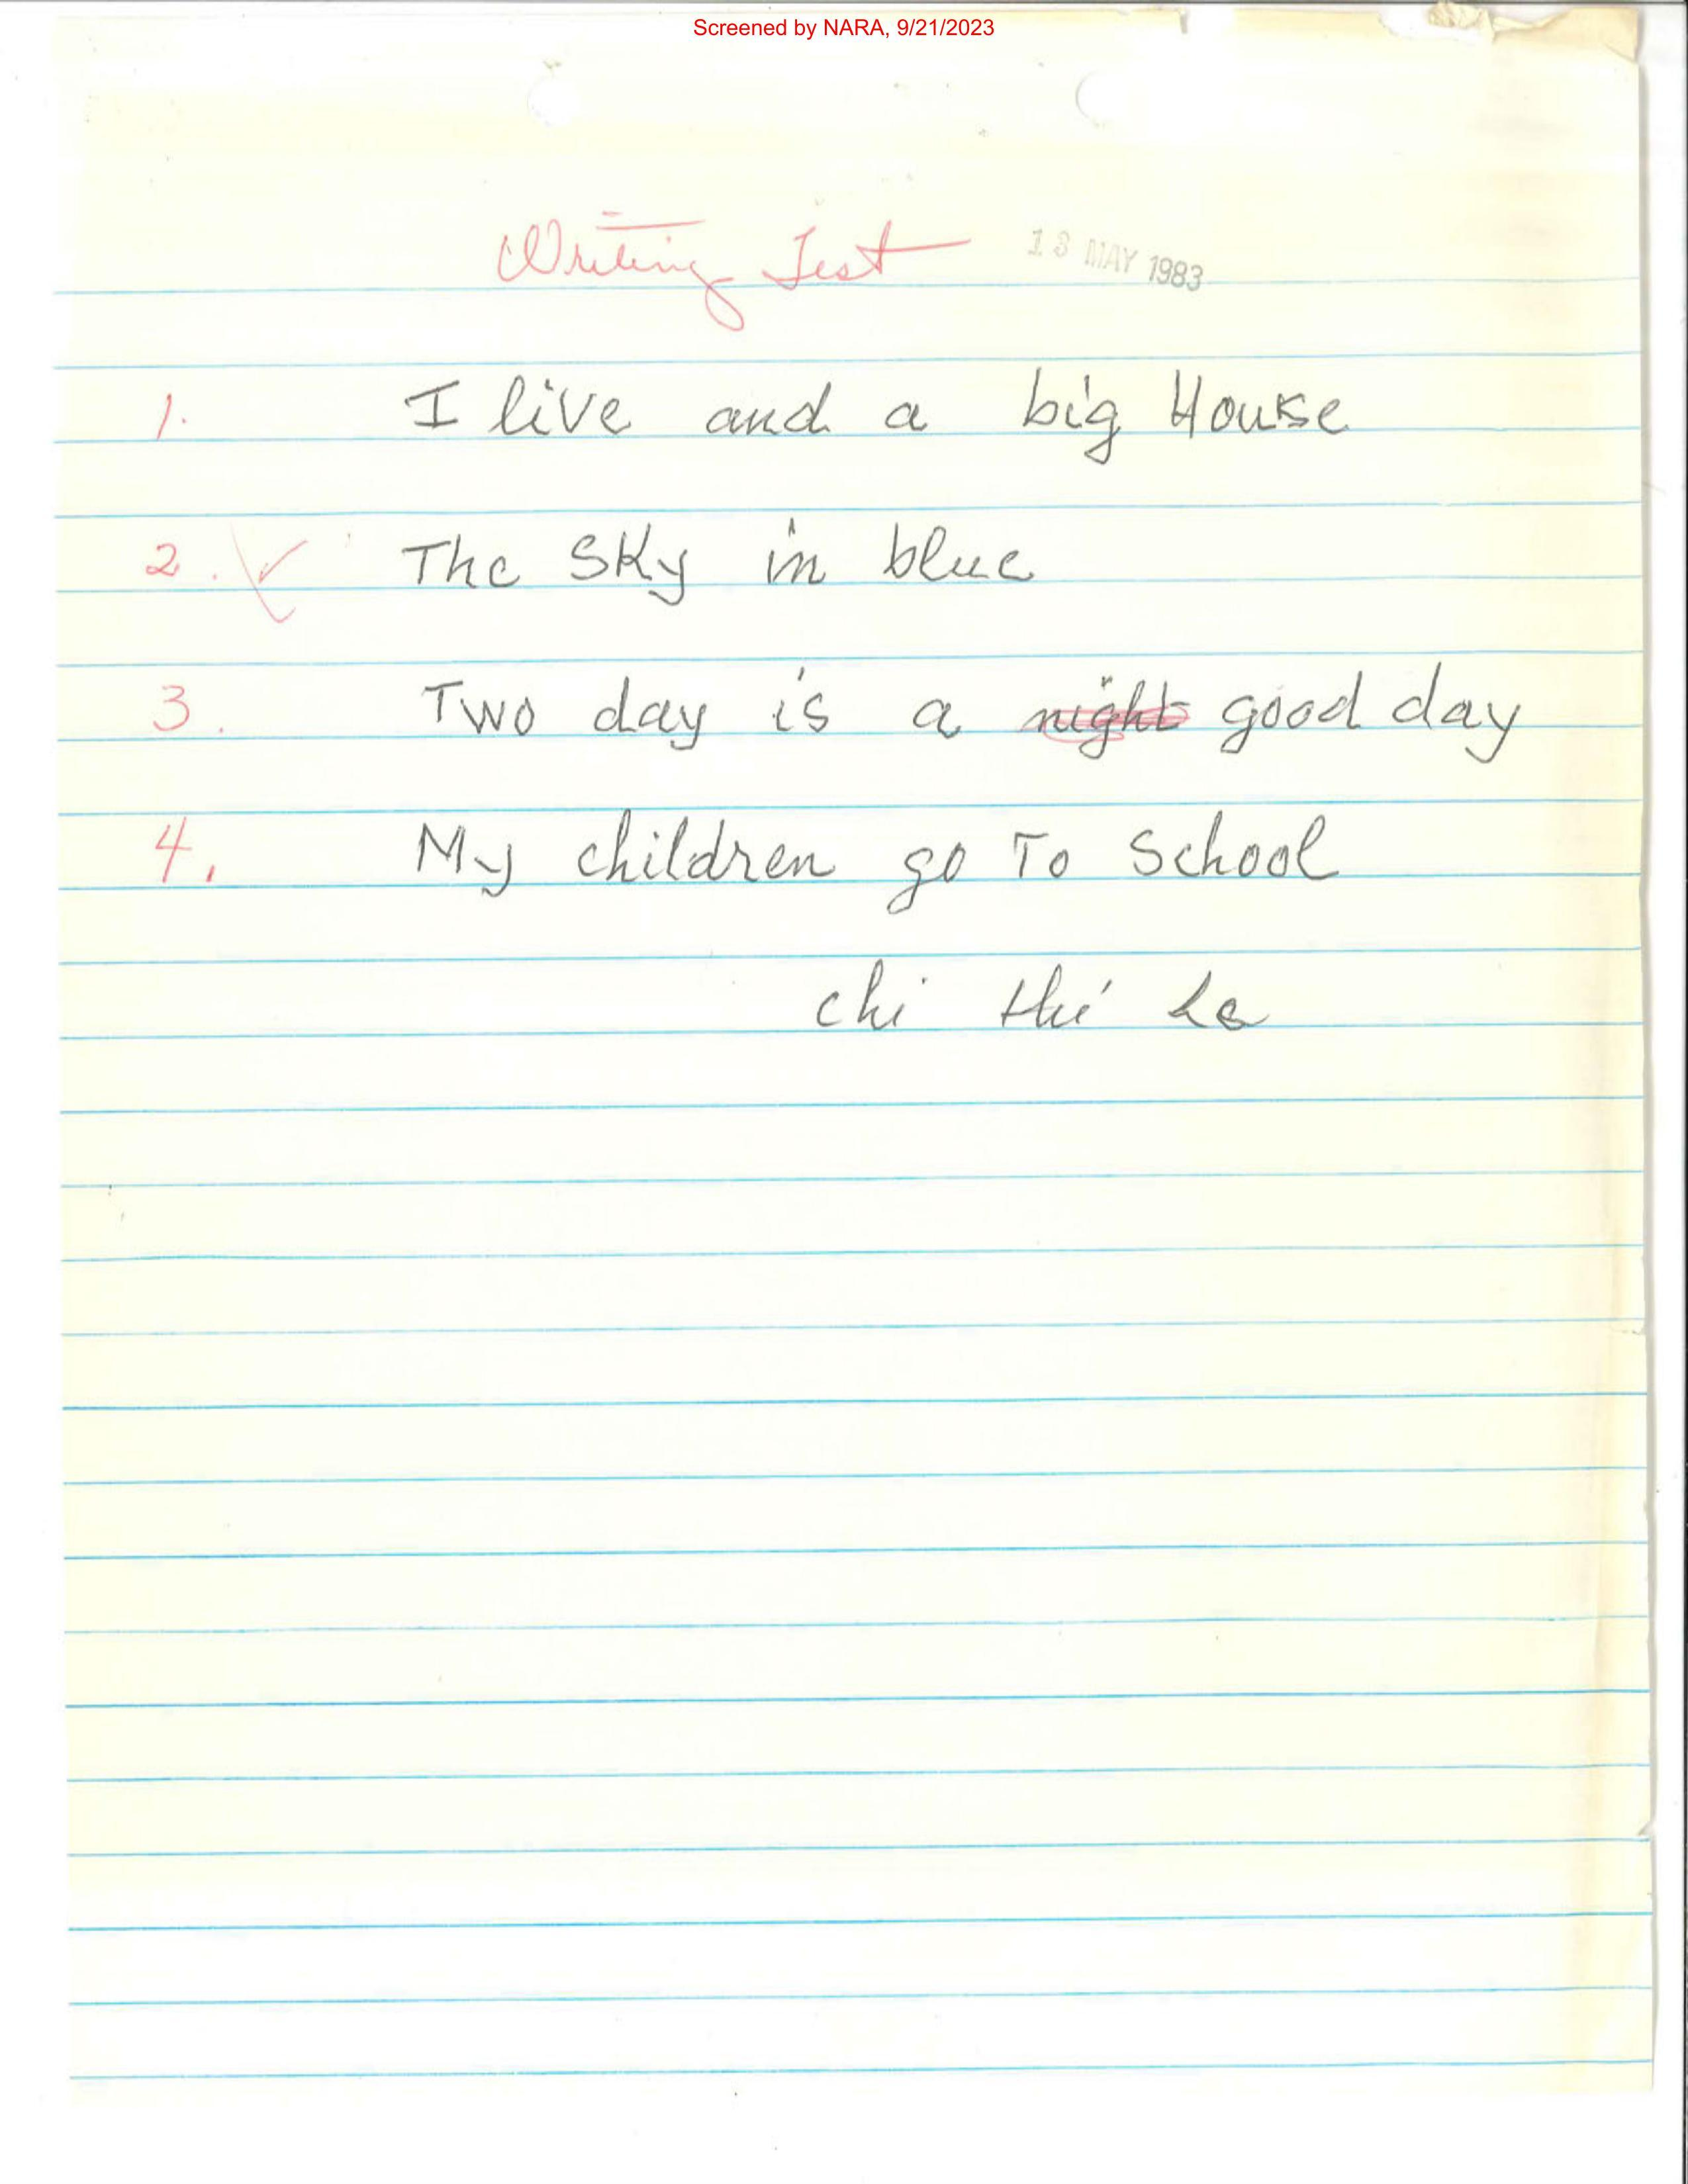 Screened by NARA, 9/21/2023
Writing Test 13 MAY 1983
1. I live and a big House
2. ✓ The SKy in blue
3. Two day is a night good day
4. My children go To School
chi thé Le